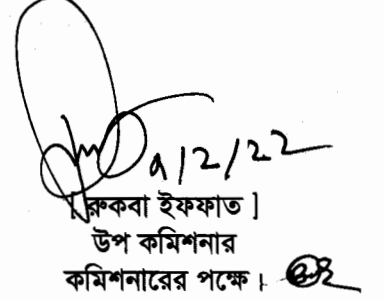 ৭/2/22
[ রুকবা ইফফাত ]
উপ কমিশনার
কমিশনারের পক্ষে।